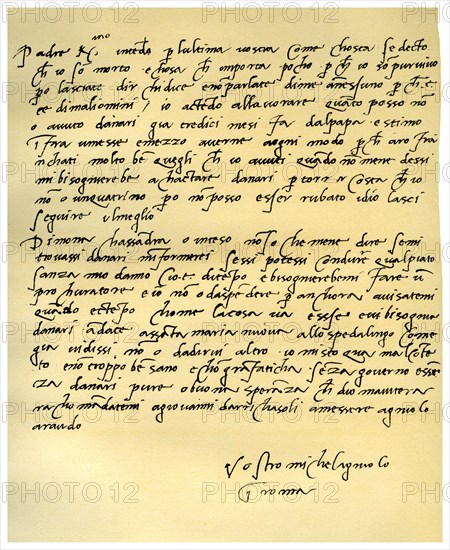 Padre K^mo intẽdo p lultima vostra come chosta se decto
ch io sõ morto e chosa ch importa pocho p ch io so pur vivo
po lasciate dir chi dice e nõ parlate di me a nessuno p ch e
e de mali omini / io actẽdo allavorare quãto posso nõ
o avuto danari gia tredici mesi fa dal papa e stimo
i fra u mese e mezzo averne a ogni modo p ch aro fra
nchati molto bẽ quegli ch io avuti quãdo nõ me ne dessi
mi bisognierebe achactare danari p tornar costa ch io
nõ o un quatrino po nõ posso esser rubato idio lasci
seguire il meglio
Di mona chassãdra o inteso nõ so che me ne dire se mi
trovassi danari mi informerei se si potessi condure qua il piato
sanza mio danno cioe di tẽpo e bisognierebemi fare ũ
prochuratore e io nõ o da spẽdere p anchora avisatemi
quãdo e ctẽpo chome la cosa va e sse vi bisognia
danari adate a ssãta maria nuova allo spedalingo come
gia vi dissi nõ o da dirvi altro io mi sto qua malcõtẽ
to e nõ troppo bẽ sano e chõ grã faticha sẽza governo e sse
za danari pure o buona sperãza ch dio maiutera
rachomãdatemi a giovanni da richasoli a messere agniolo
araldo
Vostro michelagniolo
i roma